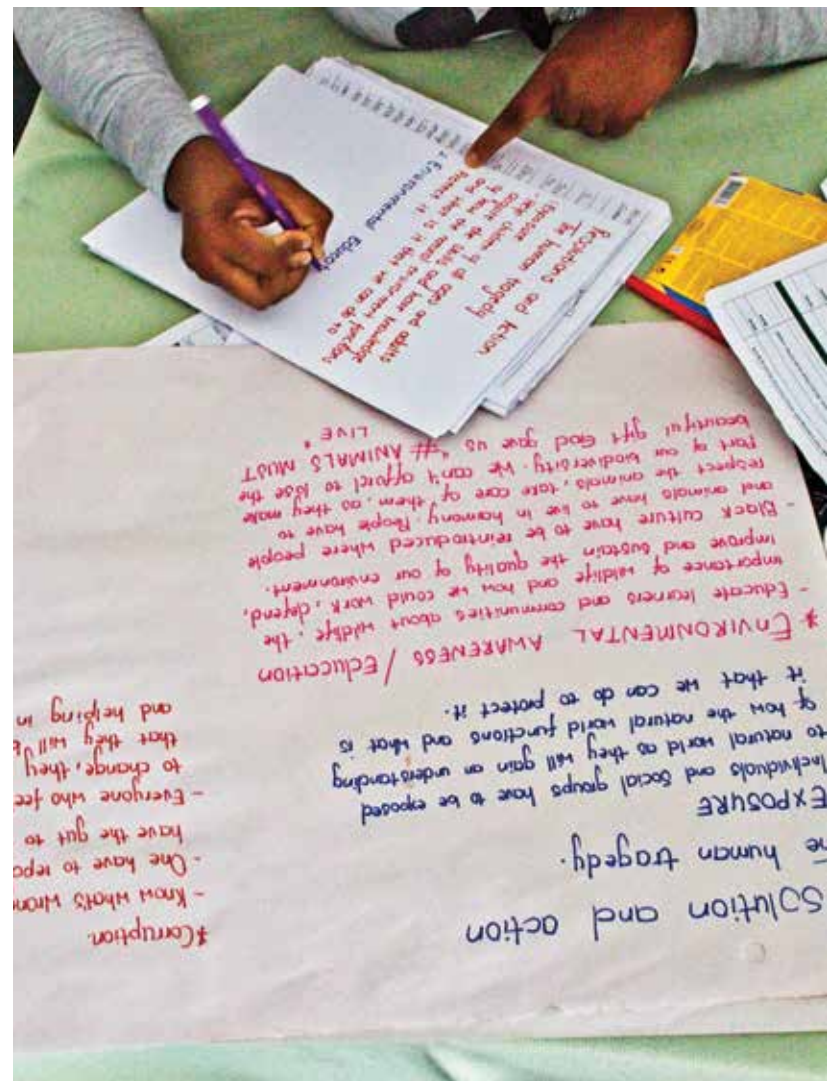 Solution and action
human tragedy.
EXPOSURE
Individuals and Social groups have to be exposed
to natural world as they will gain an understanding
of how the natural world functions and what is
it that we can do to protect it.
* ENVIRONMENTAL AWARENESS / Education
- Educate learners and communities about wildlife, the
importance of wildlife and how we could work, defend,
improve and sustain the quality of our environment.
- Black culture have to be reintroduced where people
and animals have to live in harmony. People have to
respect the animals, take care of them, as they make
Part of our biodiversity. We can't afford to lose the
beautiful gift God gave us "# ANIMALS MUST
LIVE "
*Corruption.
- Know what's
- One have to
have the gut to
- Everyone who
to change, they
that they will
and helping in
and Action
The human tragedy
Exposure
children of all ages and adults
have knowledge
functions
and what is it that we can do to
protect it
Environmental